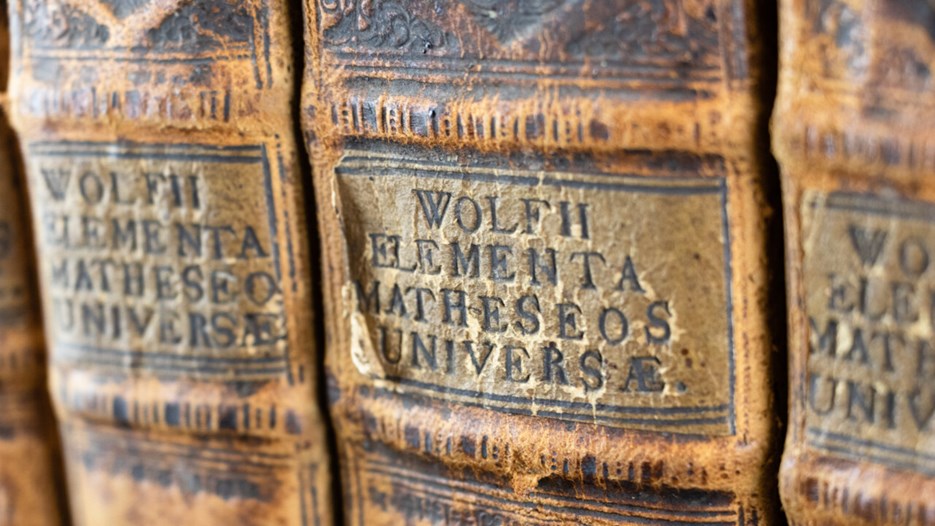 WOLFII
ELEMENTA
MATHESEO
UNIVERSÆ
WOLFII
ELEMENTA
MATHESEOS
UNIVERSÆ.
WO
ELE
MATH
UNIV